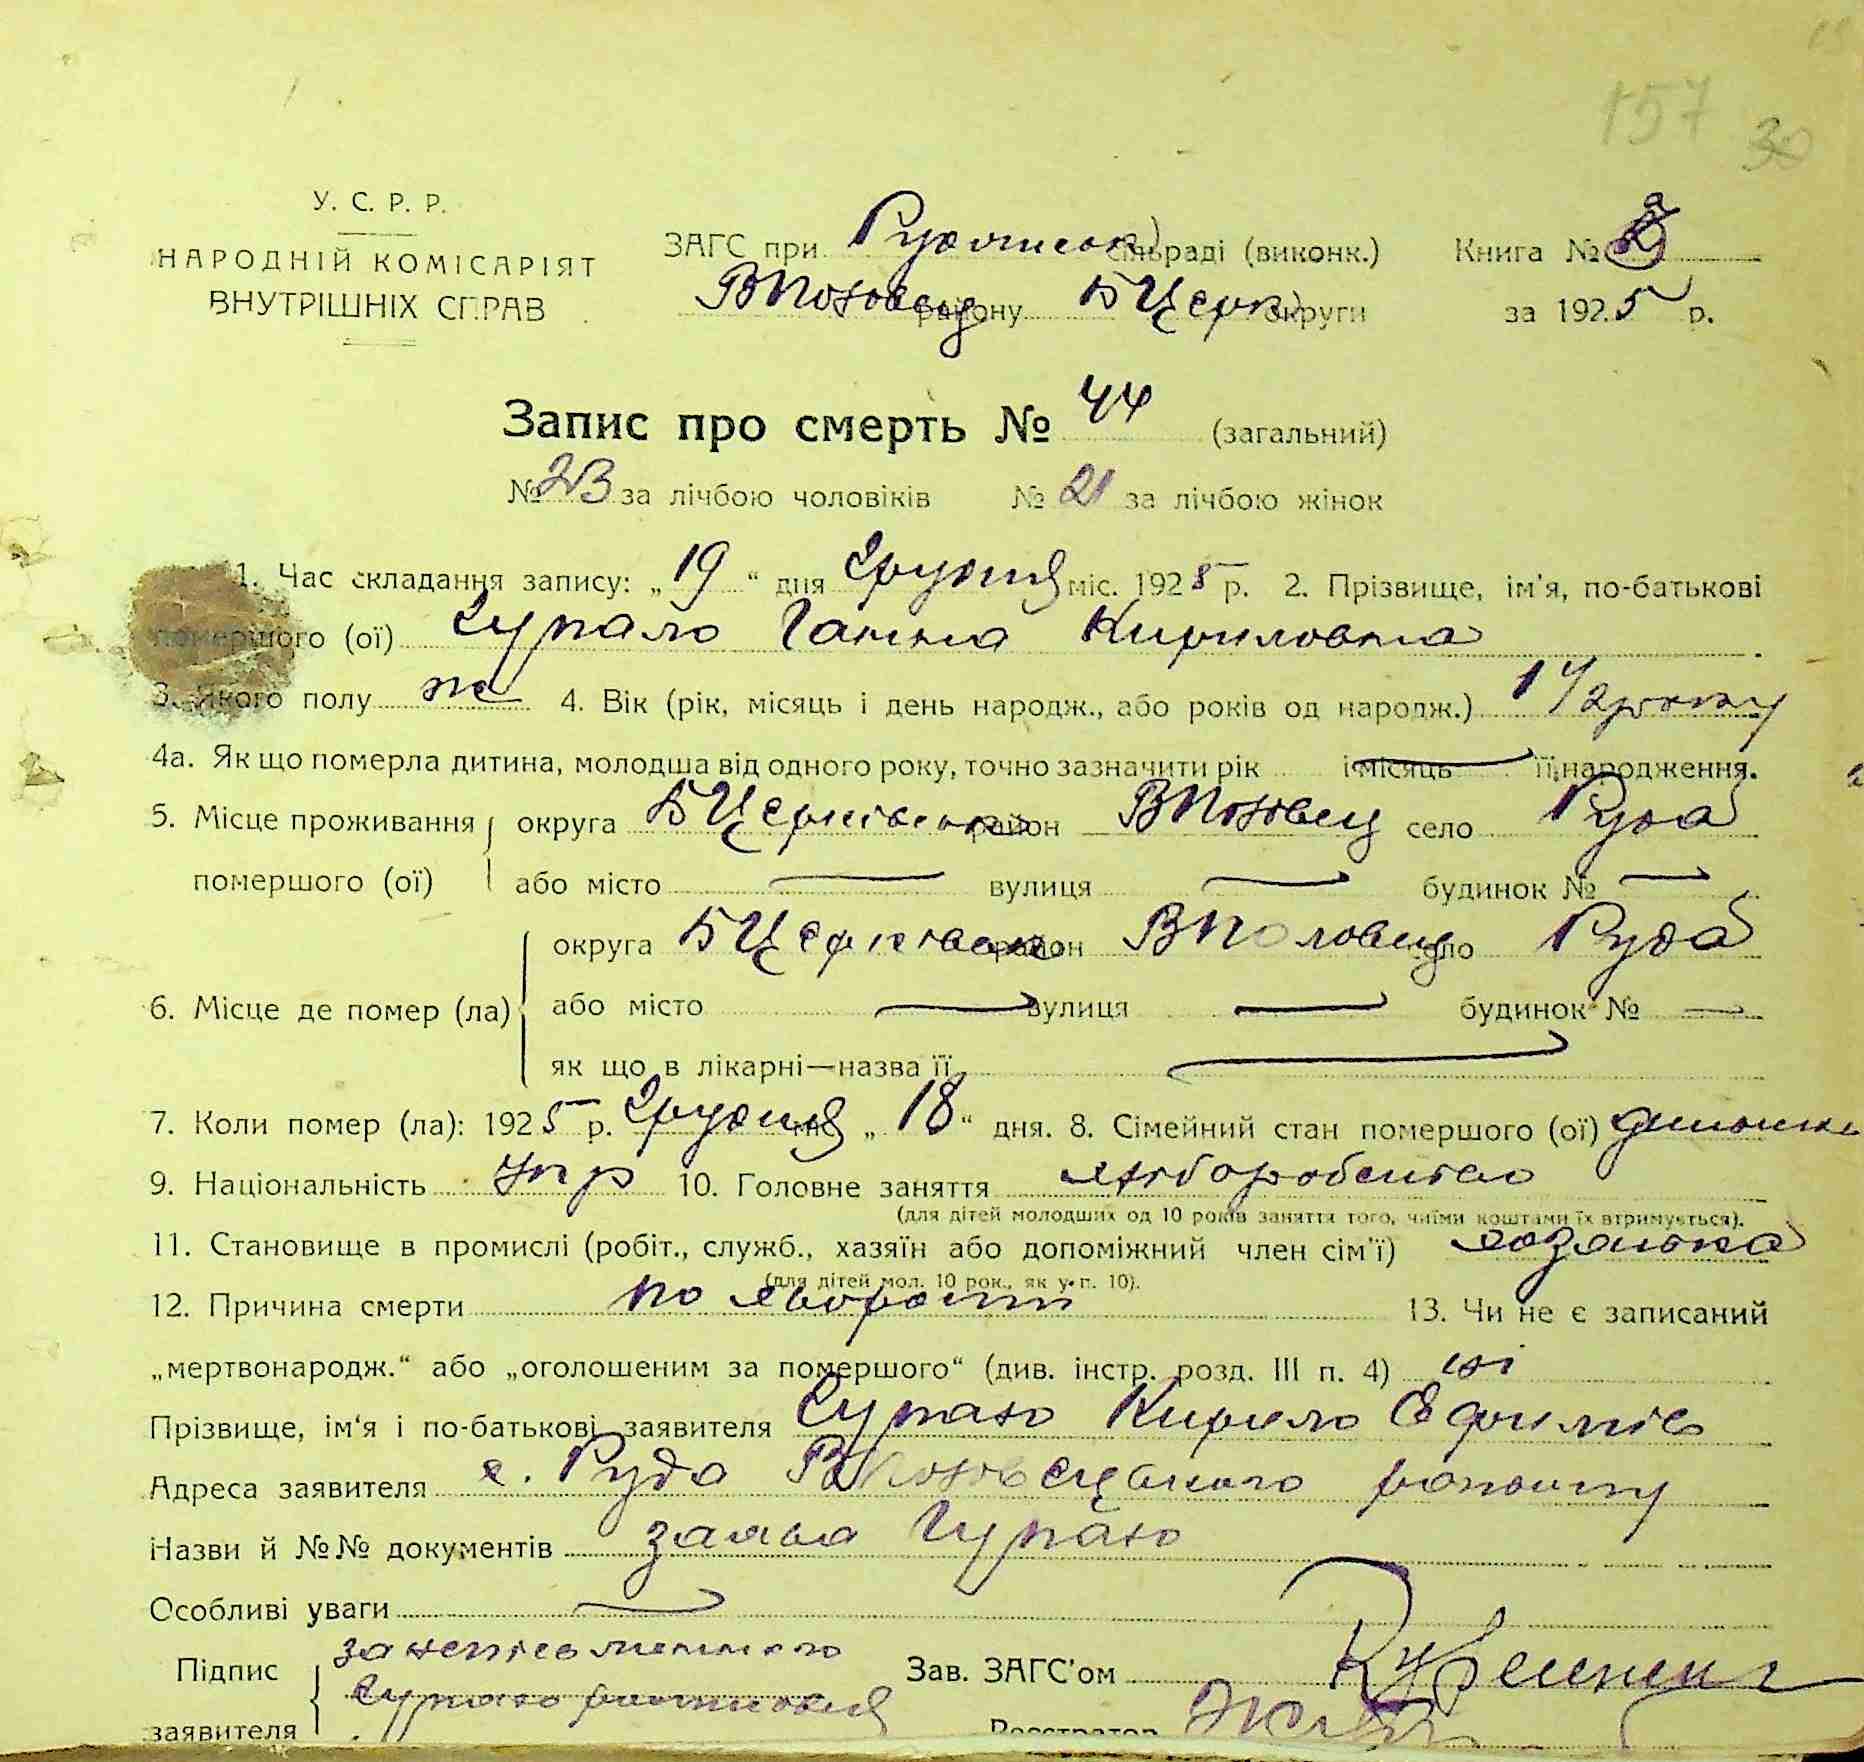 157 30
У. С. Р. Р.
НАРОДНІЙ КОМІСАРІЯТ
ВНУТРІШНІХ СПРАВ
ЗАГС при сільраді (виконк.) Книга № 2
району БЦерк округи за 1925 р.
Запис про смерть № 44 (загальний)
№ 23 за лічбою чоловіків № 21 за лічбою жінок
1. Час складання запису: „19“ дня Грудня міс. 1925 р. 2. Прізвище, ім'я, по-батькові
помершого (ої) Ганна Кириловна
3. Якого полу ж 4. Вік (рік, місяць і день народж., або років од народж.) 1 1/2 року
4а. Як що померла дитина, молодша від одного року, точно зазначити рік і місяць її народження.
5. Місце проживання округа БЦерківська район ВПоловец село Руда
помершого (ої) або місто вулиця будинок №
округа БЦерківська район ВПоловец село Руда
6. Місце де помер (ла) або місто вулиця будинок №
як що в лікарні—назва її
7. Коли помер (ла): 1925 р. Грудня міс. „18“ дня. 8. Сімейний стан помершого (ої)
9. Національність Укр 10. Головне заняття хліборобство
(для дітей молодших од 10 років заняття того, чиїми коштами їх втримується).
11. Становище в промислі (робіт., служб., хазяїн або допоміжний член сім'ї) хозяйка
(для дітей мол. 10 рок., як у п. 10).
12. Причина смерти по хворости 13. Чи не є записаний
„мертвонародж.“ або „оголошеним за помершого“ (див. інстр. розд. III п. 4) ні
Прізвище, ім'я і по-батькові заявителя Кирило Єфимів
Адреса заявителя с. Руда ВПоловецького району
Назви й №№ документів заява
Особливі уваги
Підпис за неписьменного
заявителя Зав. ЗАГС'ом
Реєстратор